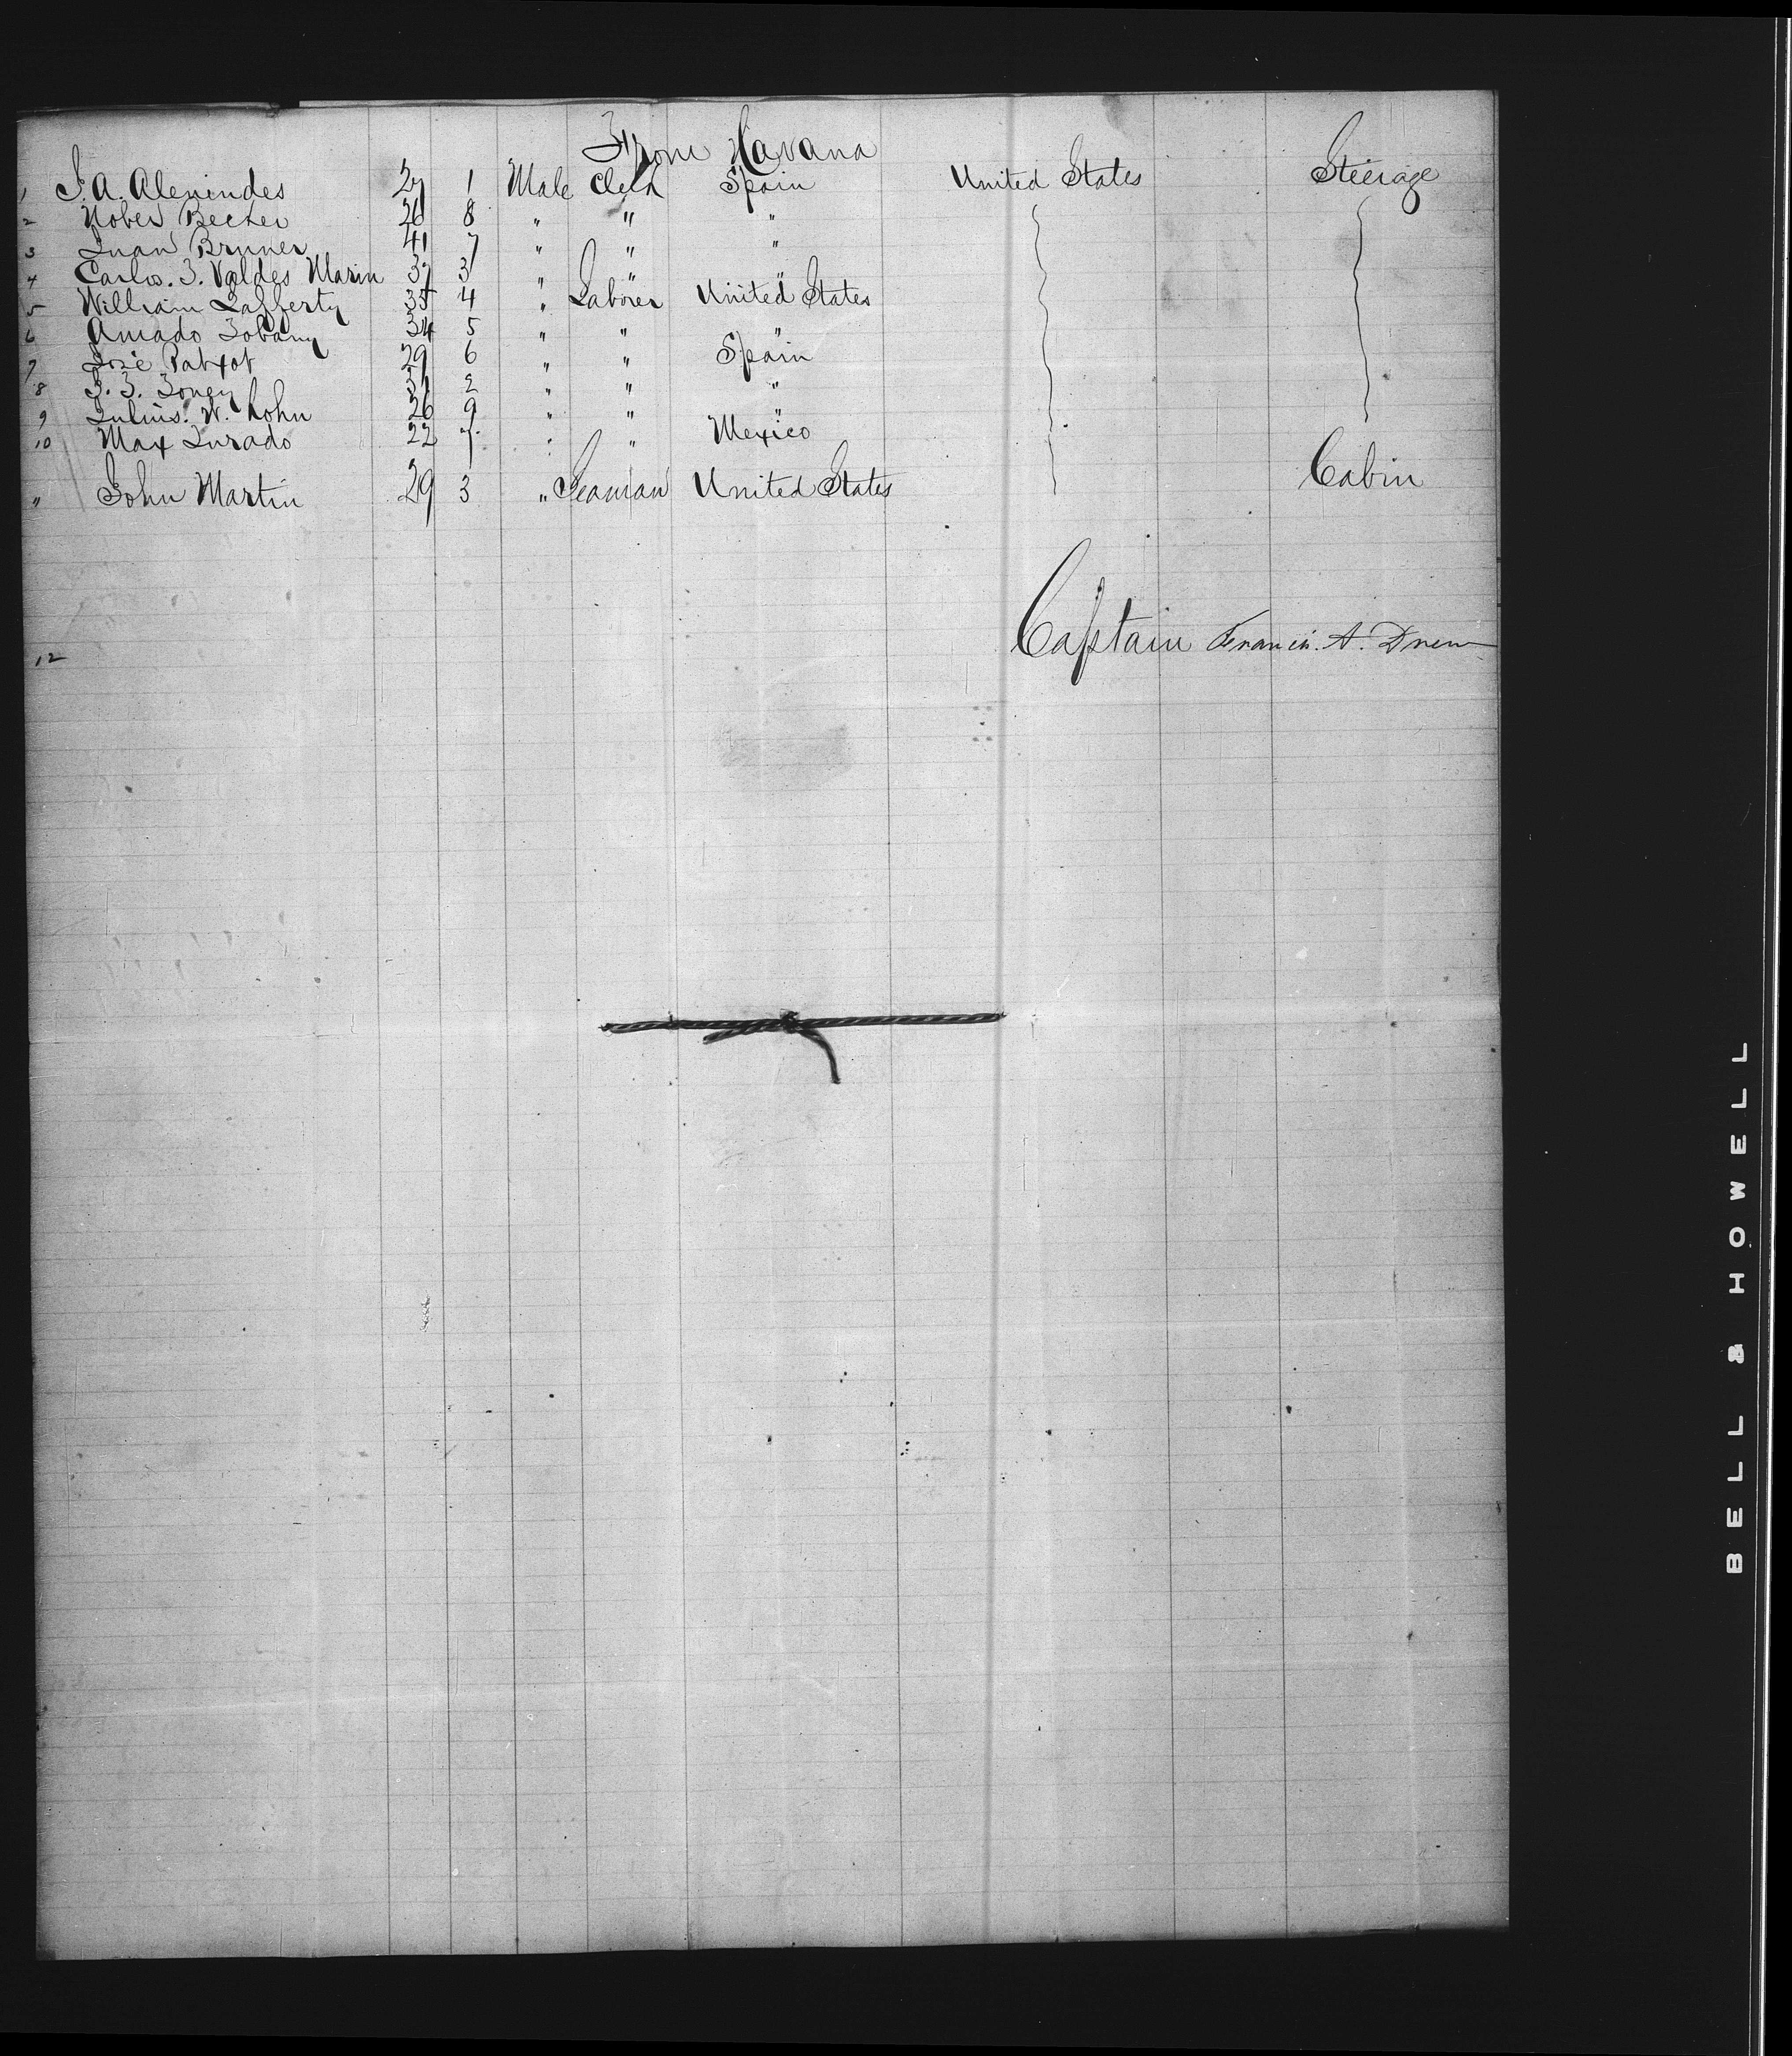 From Havana
1 J. A. Alenindes 27 1 Male Clerk Spain United States Steerage
2 Nober Becker 26 8 " " "
3 Juan Bruner 41 7 " " "
4 Carlos. J. Valdes Marin 37 3 " " "
5 William Lafferty 35 4 " Laborer United States
6 Amado 34 5 " " "
7 José Patxot 29 6 " " Spain
8 31 2 " " "
9 Julius. W. Hohn 26 9 " " "
10 Max Jurado 22 7 " " Mexico
" John Martin 29 3 " Seaman United States Cabin
12 Captain Francis. A. Drew
BELL & HOWELL